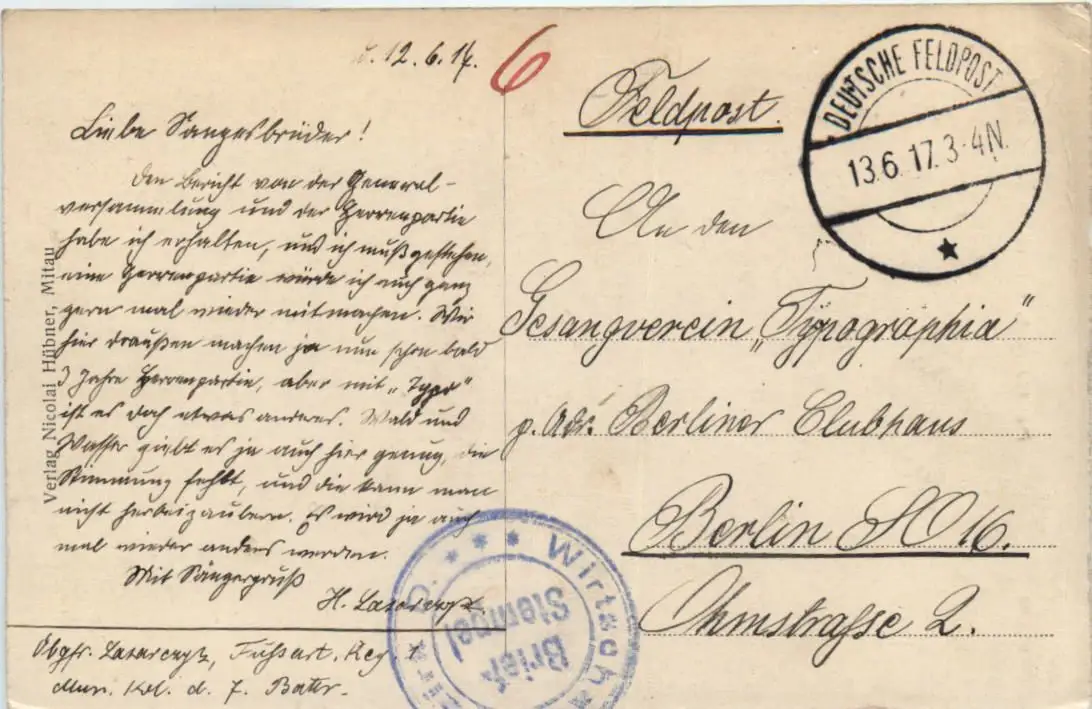 d. 12.6.17.
6
Liebe Sangesbrüder!
Den Bericht von der General-
versammlung und der Herrenpartie
habe ich erhalten, und ich muß gestehen,
eine Herrenpartie würde ich auch ganz
gern mal wieder mitmachen. Wir
hier draußen machen ja nun schon bald
3 Jahre Herrenpartie, aber mit „Typo"
ist es doch etwas anderes. Wald und
Wasser giebt es ja auch hier genug, die
Stimmung fehlt, und die kann man
nicht herbeizaubern. Es wird ja auch
mal wieder anders werden.
Mit Sängergruß
H. Lazarczyk.
Obgfr. Lazarczyk, Fußart. Reg. 1
Mun. Kol. d. 7. Battr.
Verlag Nicolai Hübner, Mitau
Feldpost.
DEUTSCHE FELDPOST
13.6.17. 3-4N.
An den
Gesangverein „Typographia"
p. Adr. Berliner Clubhaus
Berlin SO 16.
Ohmstrasse 2.
Brief
Stempel